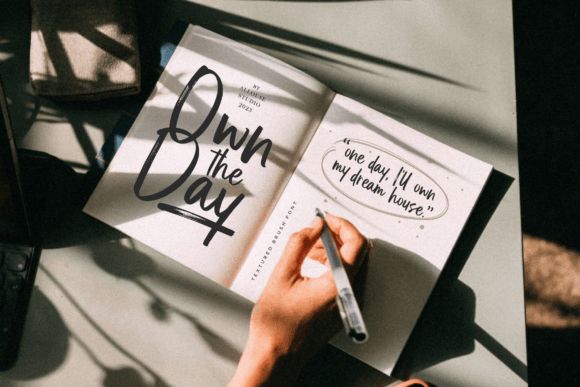 Own
the
Day
BY
ALLOUSE
STUDIO
2023
TEXTURED BRUSH FONT
"one day, I'll own
my dream house."